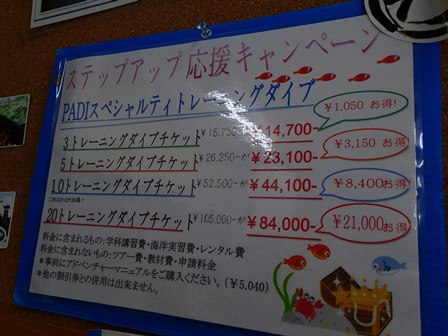 ステップアップ応援キャンペーン
PADIスペシャルティトレーニングダイブ
¥1,050 お得!
3トレーニングダイブチケット ¥15,750-が ¥14,700-
¥3,150 お得!
5トレーニングダイブチケット ¥26,250-が ¥23,100-
10トレーニングダイブチケット ¥52,500-が ¥44,100-
¥8,400お得!
20トレーニングダイブチケット ¥105,000-が ¥84,000-
¥21,000 お得!
料金に含まれるもの:学科講習費・海洋実習費・レンタル費
料金に含まれないもの:ツアー費・教材費・申請料金
*事前にアドベンチャーマニュアルをご購入ください。(¥5,040)
*他の割引券との併用は出来ません。